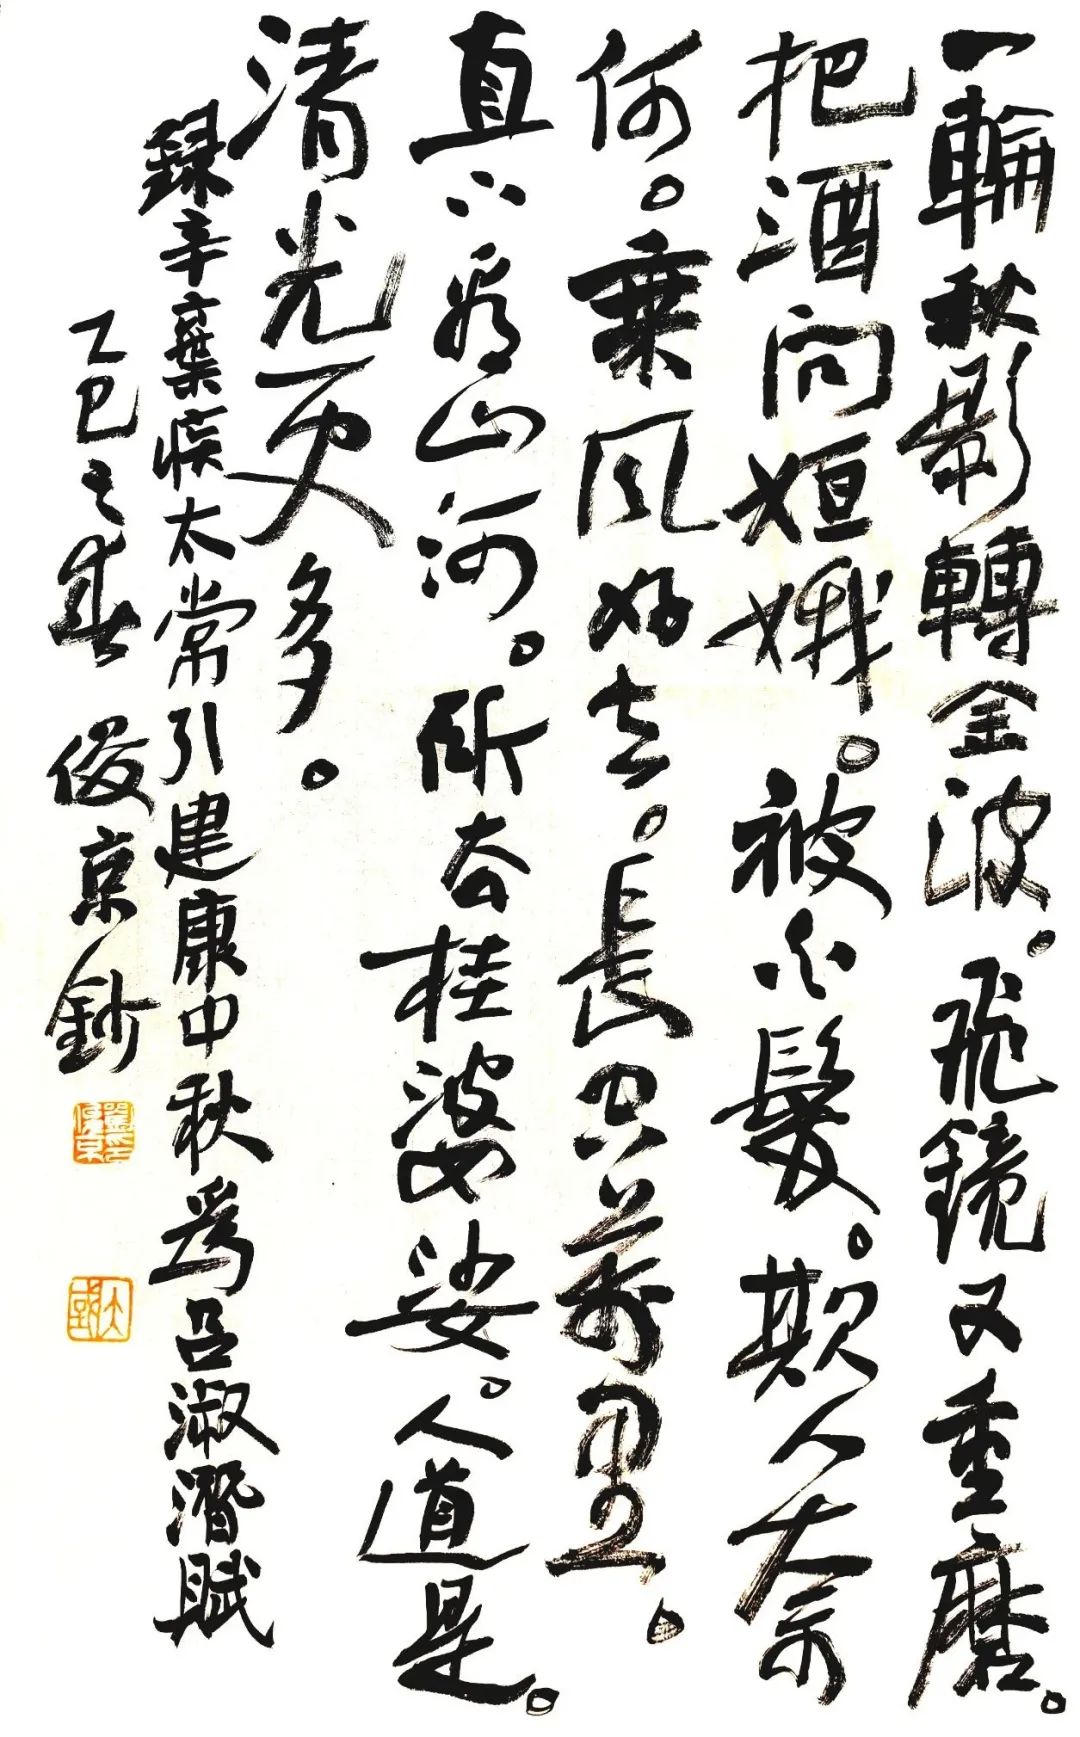 一輪秋影轉金波。飛鏡又重磨。
把酒問姮娥。被白髮。欺人奈
何。乘風好去。長空萬里。
直下看山河。斫去桂婆娑。人道是。
清光更多。
録辛棄疾太常引建康中秋爲呂淑潛賦
乙巳之春 俊京鈔